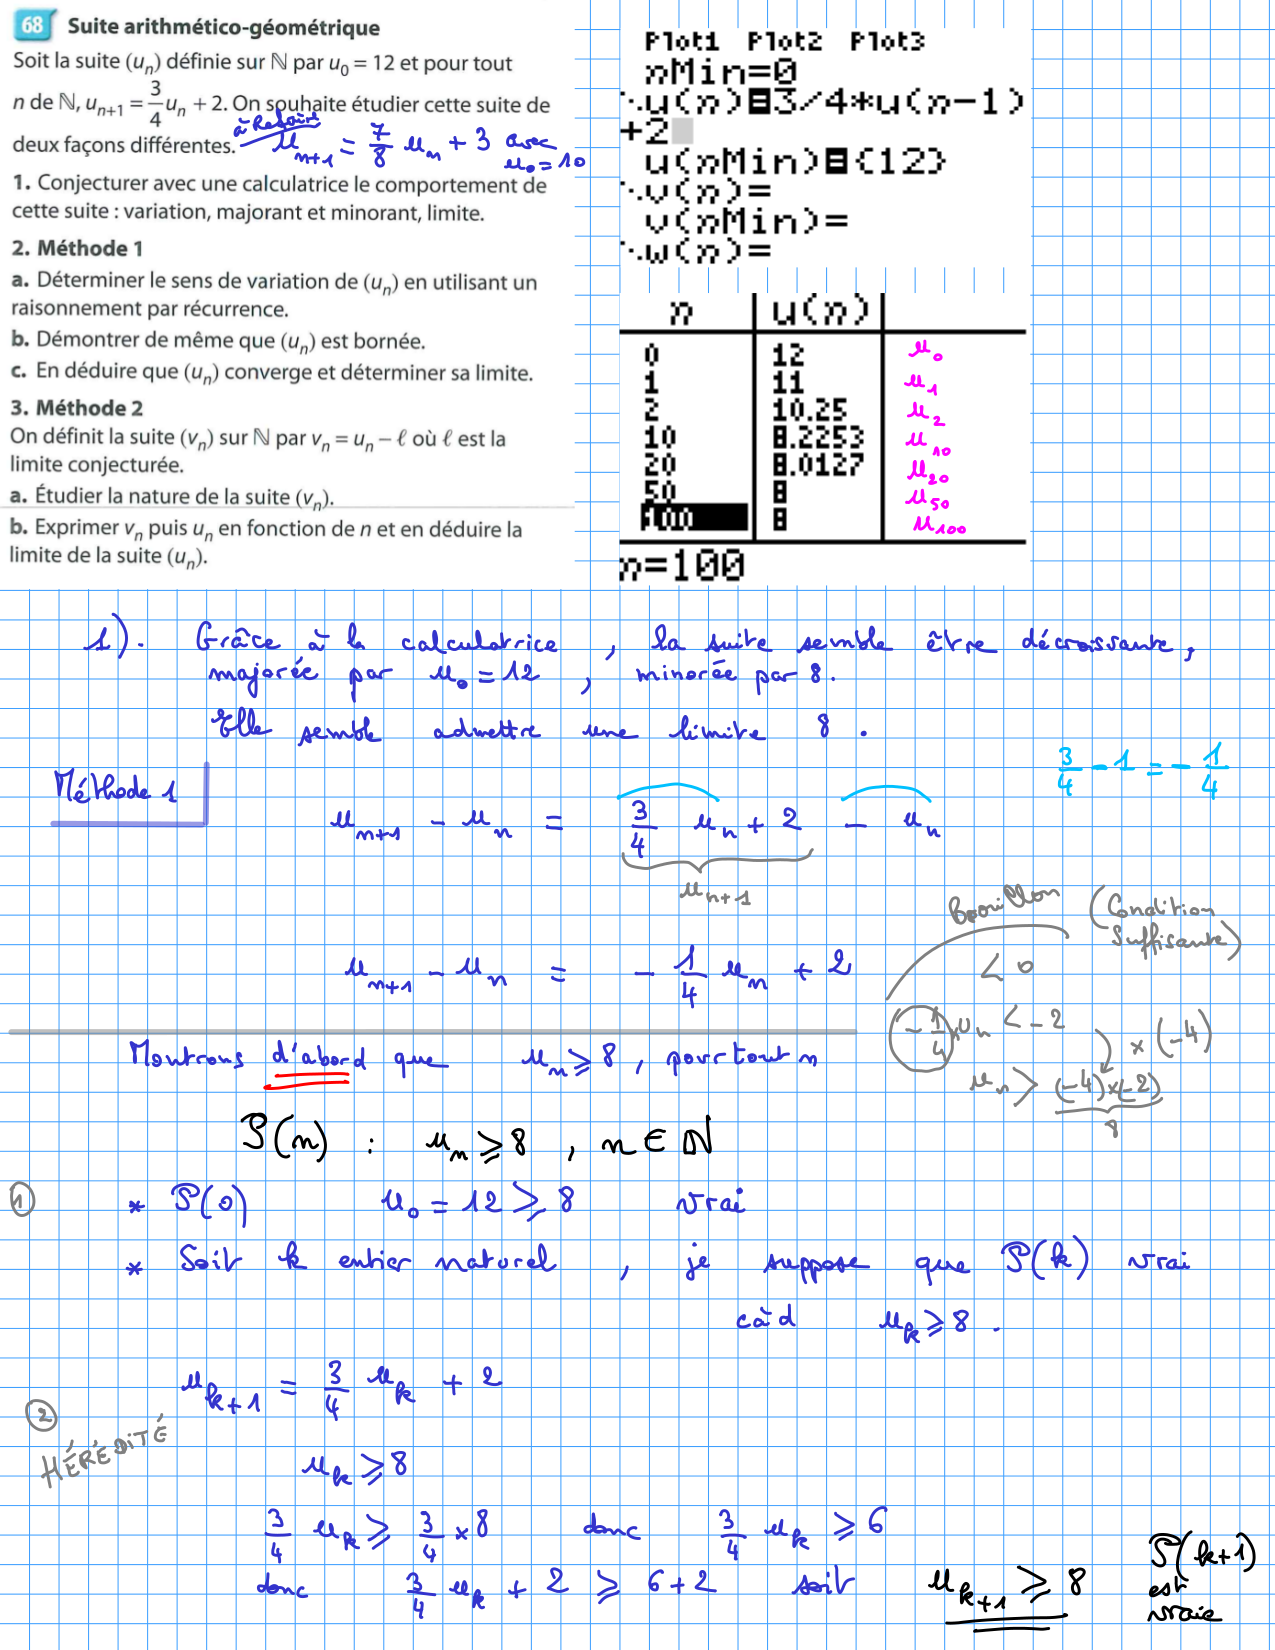 68 Suite arithmético-géométrique
Soit la suite (uₙ) définie sur ℕ par u₀ = 12 et pour tout
n de ℕ, uₙ₊₁ = 3/4 uₙ + 2. On souhaite étudier cette suite de
deux façons différentes.
à Refaire uₙ₊₁ = 7/8 uₙ + 3 avec
u₀ = 10
1. Conjecturer avec une calculatrice le comportement de
cette suite : variation, majorant et minorant, limite.
2. Méthode 1
a. Déterminer le sens de variation de (uₙ) en utilisant un
raisonnement par récurrence.
b. Démontrer de même que (uₙ) est bornée.
c. En déduire que (uₙ) converge et déterminer sa limite.
3. Méthode 2
On définit la suite (vₙ) sur ℕ par vₙ = uₙ − ℓ où ℓ est la
limite conjecturée.
a. Étudier la nature de la suite (vₙ).
b. Exprimer vₙ puis uₙ en fonction de n et en déduire la
limite de la suite (uₙ).
Plot1 Plot2 Plot3
nMin=0
u(n)=3/4*u(n-1)
+2
u(nMin)={12}
v(n)=
v(nMin)=
w(n)=
n u(n)
0 12 u₀
1 11 u₁
2 10.25 u₂
10 8.2253 u₁₀
20 8.0127 u₂₀
50 8 u₅₀
100 8 u₁₀₀
n=100
1). Grâce à la calculatrice, la suite semble être décroissante,
majorée par u₀ = 12, minorée par 8.
Elle semble admettre une limite 8.
3/4 - 1 = - 1/4
Méthode 1
uₙ₊₁ - uₙ = 3/4 uₙ + 2 - uₙ
uₙ₊₁
Brouillon (Condition
Suffisante)
< 0
uₙ₊₁ - uₙ = - 1/4 uₙ + 2
- 1/4 × uₙ < -2
× (-4)
uₙ > (-4)×(-2)
8
Montrons d'abord que uₙ ⩾ 8, pour tout n
P(n) : uₙ ⩾ 8, n ∈ ℕ
① * P(0) u₀ = 12 ⩾ 8 vrai
* Soit k entier naturel, je suppose que P(k) vrai
càd uₖ ⩾ 8.
uₖ₊₁ = 3/4 uₖ + 2
② HÉRÉDITÉ
uₖ ⩾ 8
3/4 uₖ ⩾ 3/4 × 8 donc 3/4 uₖ ⩾ 6
donc 3/4 uₖ + 2 ⩾ 6+2 soit uₖ₊₁ ⩾ 8
P(k+1)
est
vraie